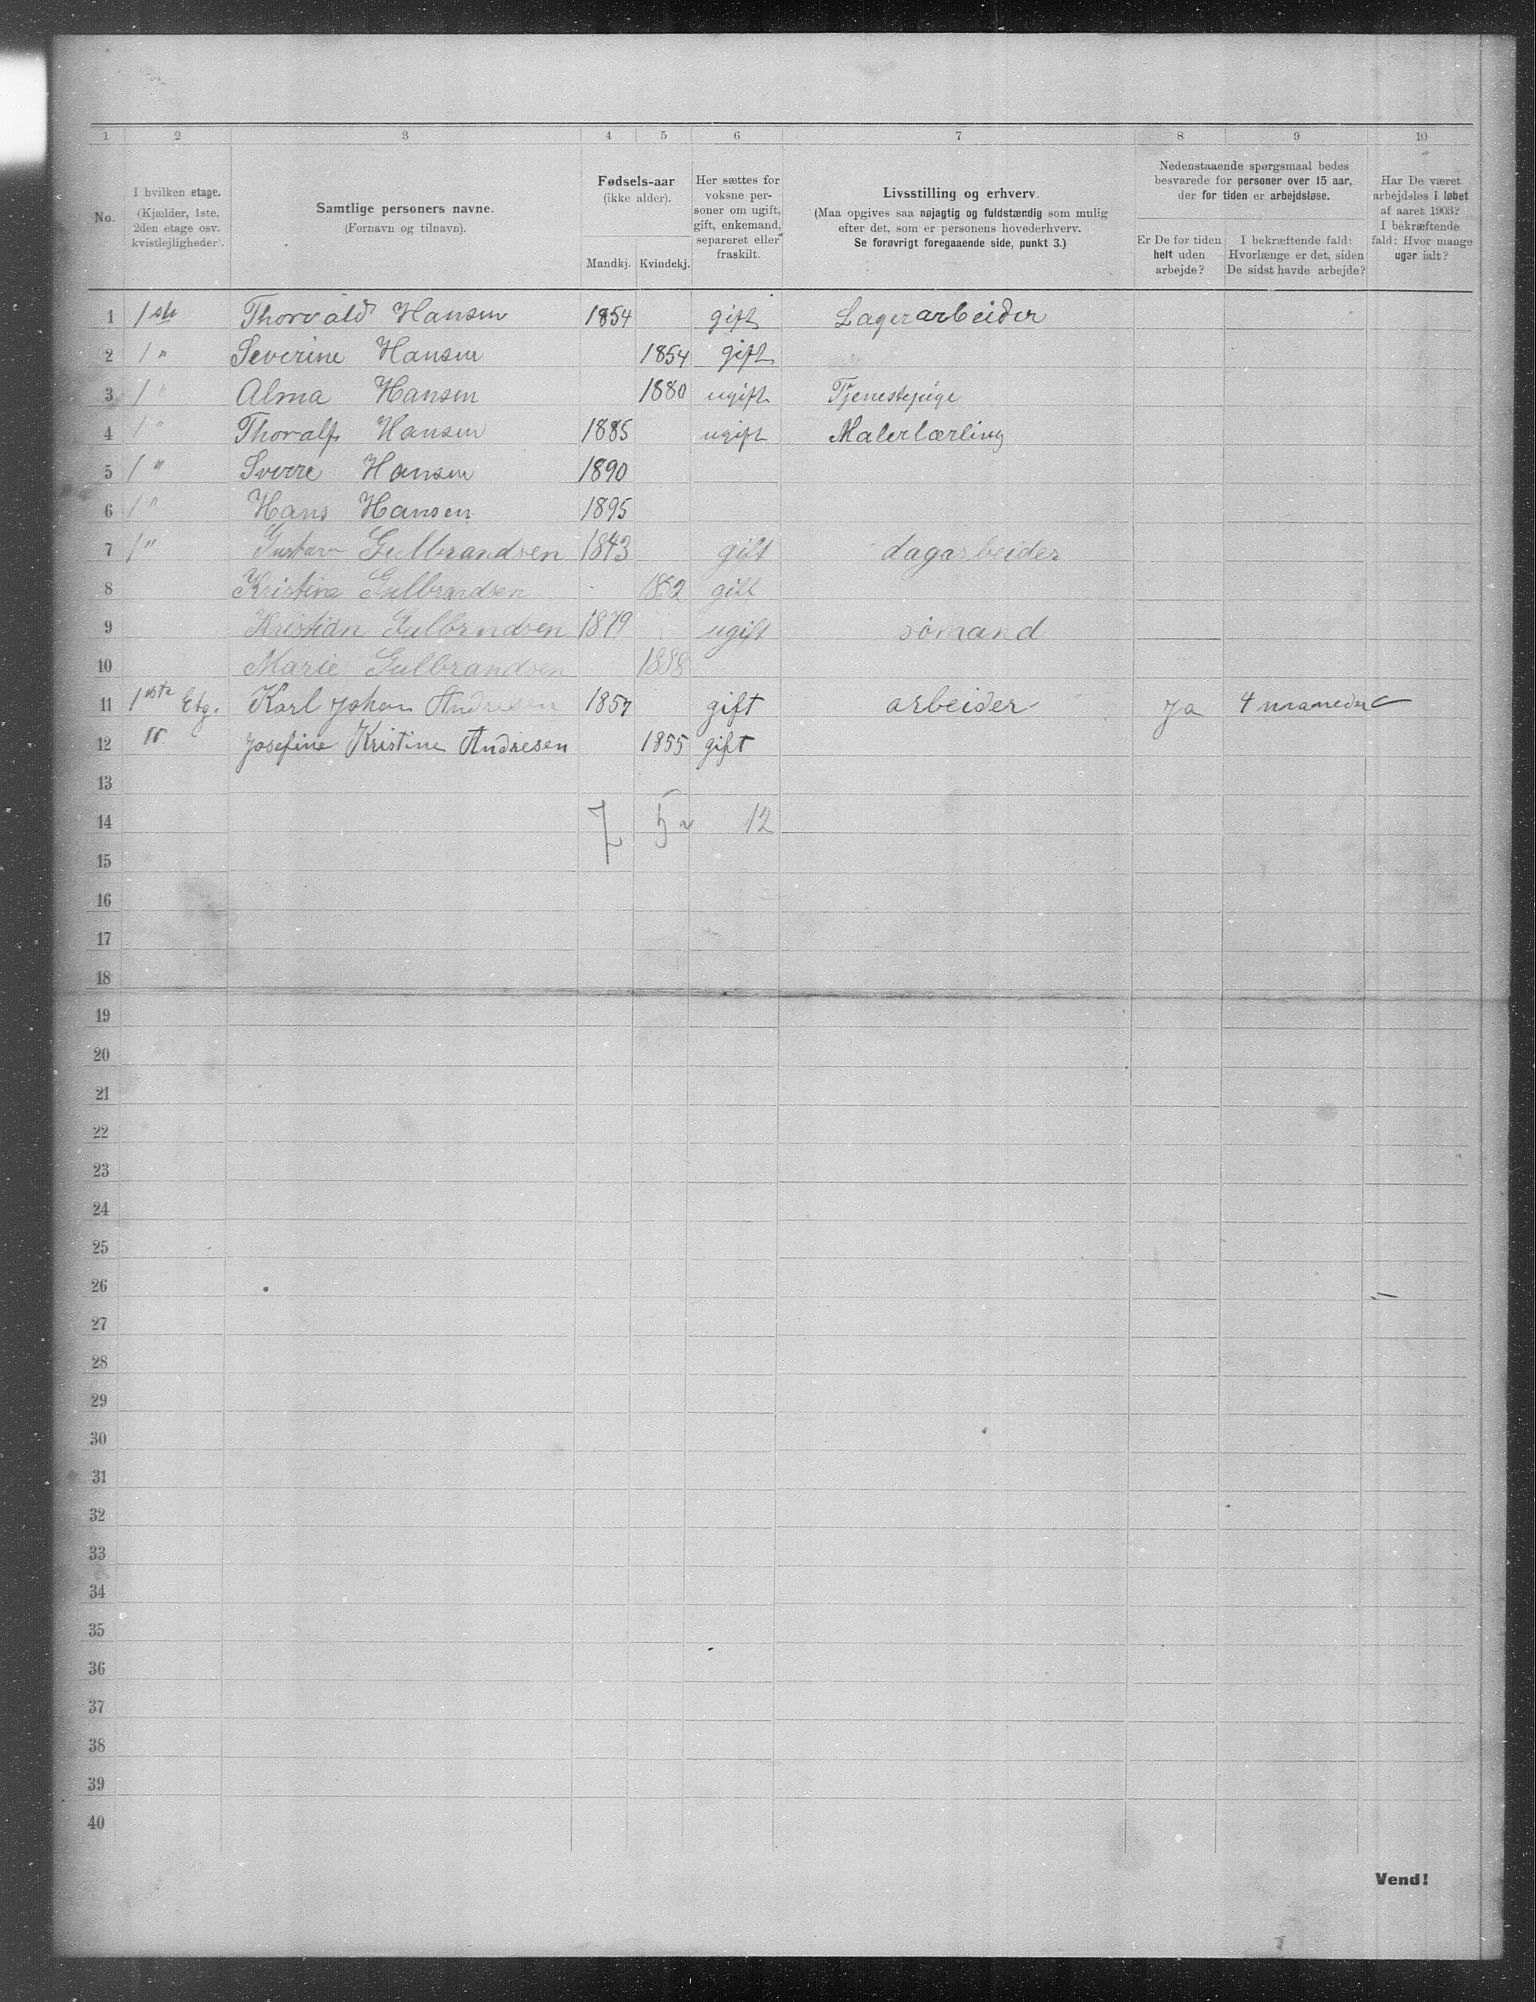 1 2 3 4 5 6 7 8 9 10
No.
I hvilken etage.
(Kjælder, 1ste,
2den etage osv.
kvistlejligheder).
Samtlige personers navne.
(Fornavn og tilnavn).
Fødsels-aar
(ikke alder).
Mandkj. Kvindekj.
Her sættes for
voksne per-
soner om ugift,
gift, enkemand,
separeret eller
fraskilt.
Livsstilling og erhverv.
(Maa opgives saa nøjagtig og fuldstændig som mulig
efter det, som er personens hovederhverv.
Se forøvrigt foregaaende side, punkt 3.)
Nedenstaaende spørgsmaal bedes
besvarede for personer over 15 aar,
der for tiden er arbejdsløse.
Er De for tiden
helt uden
arbejde?
I bekræftende fald:
Hvorlænge er det, siden
De sidst havde arbejde?
Har De været
arbejdsløs i løbet
af aaret 1903?
I bekræftende
fald: Hvor mange
uger ialt?
1 1ste Thorvald Hansen 1854 gift Lagerarbeider
2 1 " Severine Hansen 1854 gift
3 1 " Alma Hansen 1880 ugift Tjenestepige
4 1 " Thoralf Hansen 1885 ugift Malerlærling
5 1 " Sverre Hansen 1890
6 1 " Hans Hansen 1895
7 1 " Gustav Gulbrandsen 1843 gift dagarbeider
8 Kristine Gulbrandsen 1852 gift
9 Kristian Gulbrandsen 1879 ugift sømand
10 Marie Gulbrandsen 1888
11 1ste Etg. Karl Johan Andresen 1857 gift arbeider ja 4 maaneder
12 " Josefine Kristine Andresen 1855 gift
13
14 7 5 12
15
16
17
18
19
20
21
22
23
24
25
26
27
28
29
30
31
32
33
34
35
36
37
38
39
40
Vend!